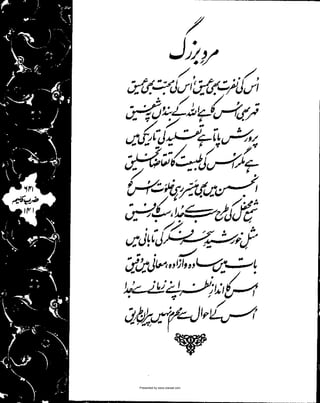 مردِ بزرگ
اُس کی نفرت بھی عمیق، اُس کی محبّت بھی عمیق
قہر بھی اُس کا ہے اللہ کے بندوں پہ شفیق
پرورش پاتا ہے تقلید کی تاریکی میں
ہے مگر اُس کی طبیعت کا تقاضا تخلیق
انجمن میں بھی میسّر رہی خلوت اُس کو
شمعِ محفل کی طرح سب سے جُدا، سب کا رفیق
مثلِ خورشیدِ سحر فکر کی تابانی میں
بات میں سادہ و آزادہ، معانی میں دقیق
اُس کا اندازِ نظر اپنے زمانے سے جُدا
اُس کے احوال سے محرم نہیں پیرانِ طریق
۶۳۱
ضربِ کلیم
۱۳۱
Presented by www.ziaraat.com